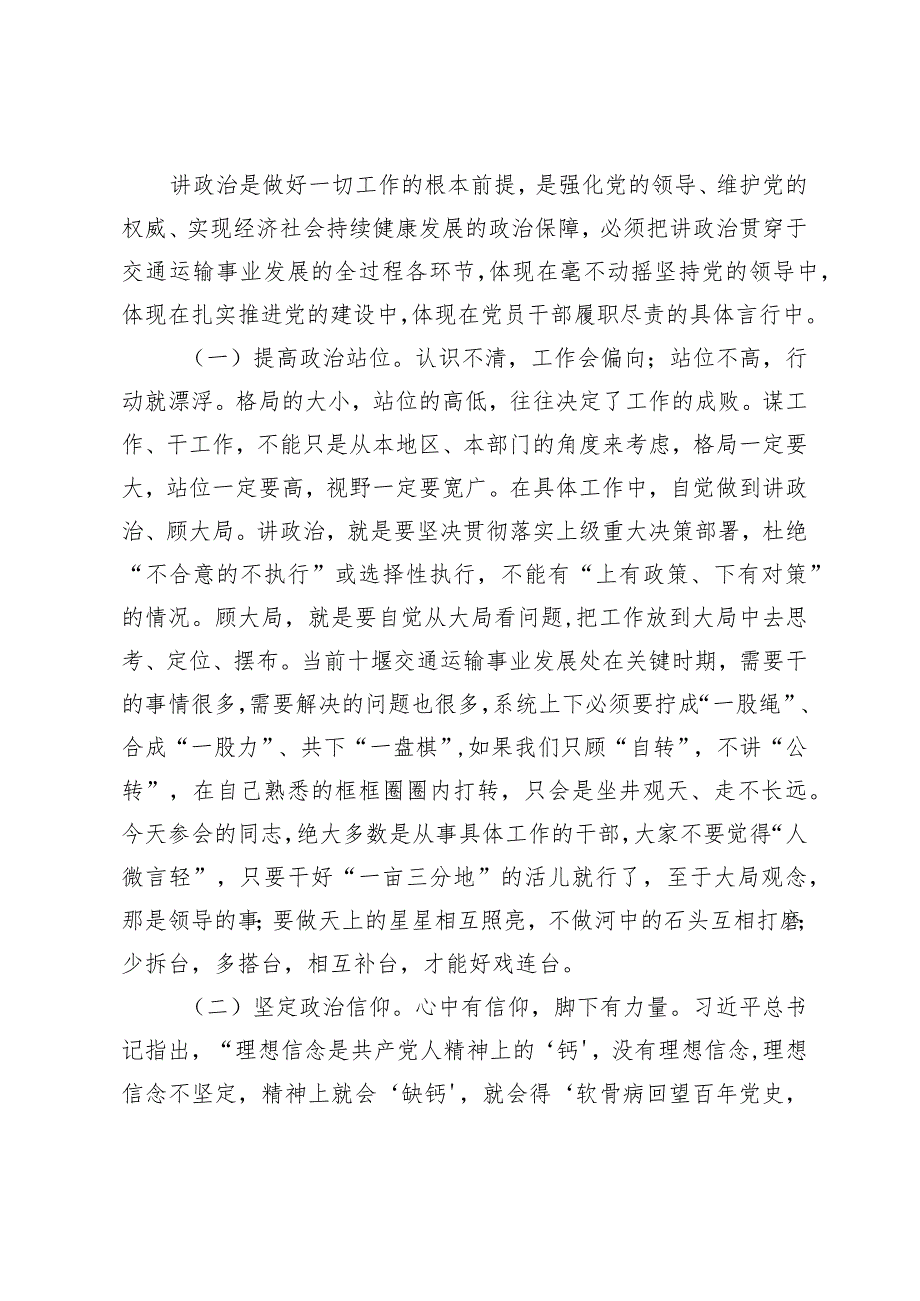 讲政治是做好一切工作的根本前提，是强化党的领导、维护党的
权威、实现经济社会持续健康发展的政治保障，必须把讲政治贯穿于
交通运输事业发展的全过程各环节,体现在毫不动摇坚持党的领导中,
体现在扎实推进党的建设中,体现在党员干部履职尽责的具体言行中。
（一）提高政治站位。认识不清，工作会偏向；站位不高，行
动就漂浮。格局的大小，站位的高低，往往决定了工作的成败。谋工
作、干工作，不能只是从本地区、本部门的角度来考虑，格局一定要
大，站位一定要高，视野一定要宽广。在具体工作中，自觉做到讲政
治、顾大局。讲政治，就是要坚决贯彻落实上级重大决策部署，杜绝
“不合意的不执行”或选择性执行，不能有“上有政策、下有对策”
的情况。顾大局，就是要自觉从大局看问题,把工作放到大局中去思
考、定位、摆布。当前十堰交通运输事业发展处在关键时期，需要干
的事情很多,需要解决的问题也很多,系统上下必须要拧成“一股绳”、
合成“一股力”、共下“一盘棋”,如果我们只顾“自转”，不讲“公
转”，在自己熟悉的框框圈圈内打转，只会是坐井观天、走不长远。
今天参会的同志,绝大多数是从事具体工作的干部,大家不要觉得“人
微言轻”，只要干好“一亩三分地”的活儿就行了，至于大局观念，
那是领导的事;要做天上的星星相互照亮，不做河中的石头互相打磨;
少拆台，多搭台，相互补台，才能好戏连台。
（二）坚定政治信仰。心中有信仰，脚下有力量。习近平总书
记指出，“理想信念是共产党人精神上的‘钙'，没有理想信念,理想
信念不坚定，精神上就会‘缺钙'，就会得‘软骨病回望百年党史，